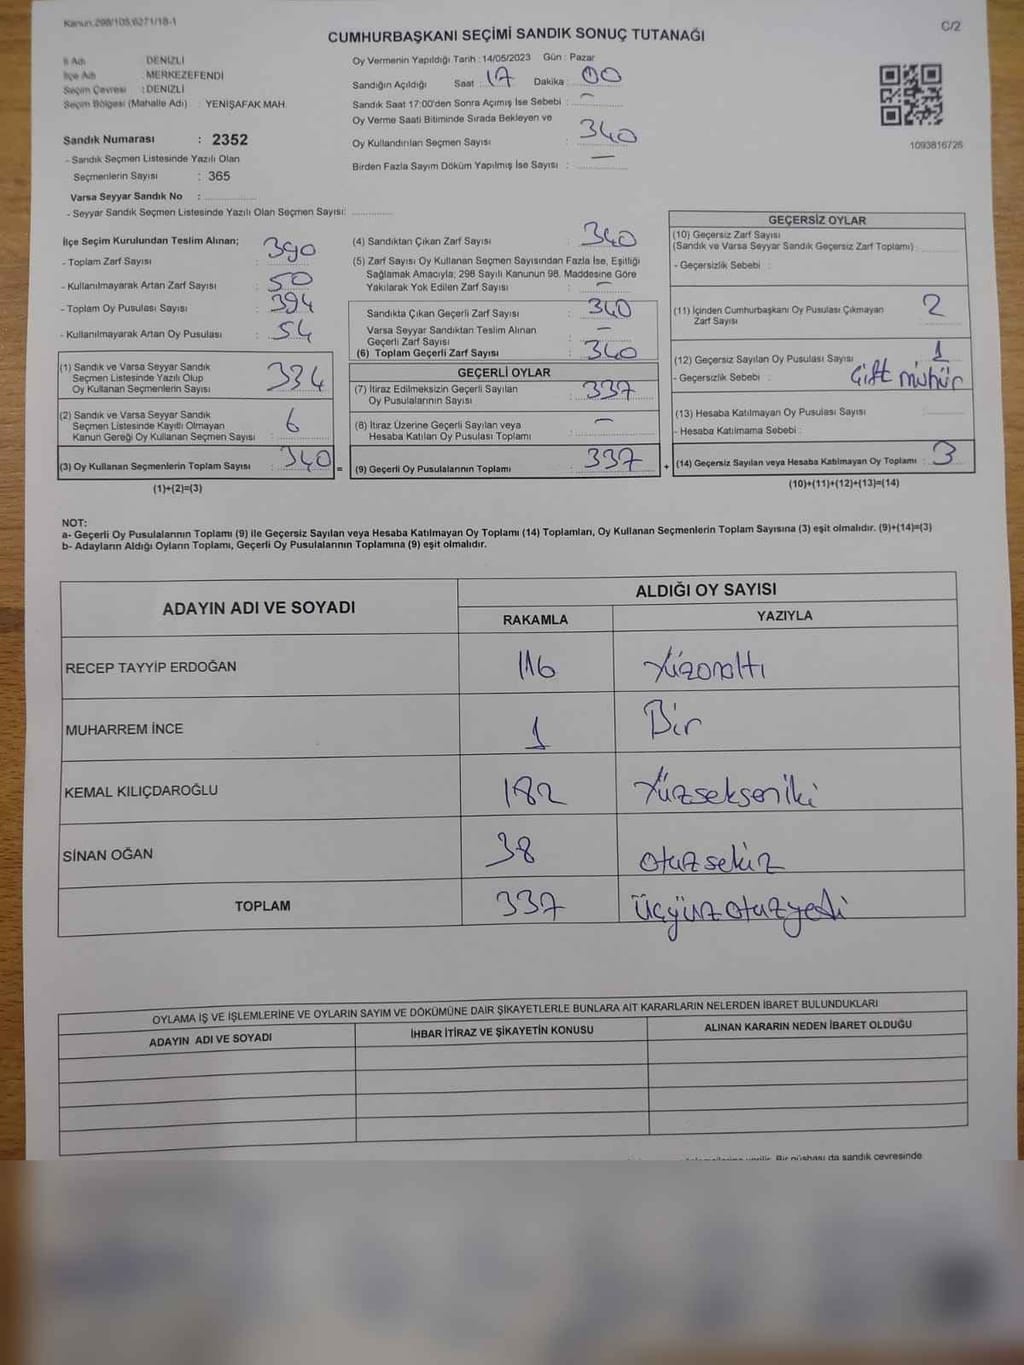 Kanun.298/105,6271/18-1
C/2
CUMHURBAŞKANI SEÇİMİ SANDIK SONUÇ TUTANAĞI
İl Adı : DENİZLİ
İlçe Adı : MERKEZEFENDİ
Seçim Çevresi : DENİZLİ
Seçim Bölgesi (Mahalle Adı) : YENİŞAFAK MAH.
Sandık Numarası : 2352
- Sandık Seçmen Listesinde Yazılı Olan
Seçmenlerin Sayısı : 365
Varsa Seyyar Sandık No :
- Seyyar Sandık Seçmen Listesinde Yazılı Olan Seçmen Sayısı:
Oy Vermenin Yapıldığı Tarih : 14/05/2023 Gün : Pazar
Sandığın Açıldığı Saat : 17 Dakika : 00
Sandık Saat 17:00'den Sonra Açımış İse Sebebi : –
Oy Verme Saati Bitiminde Sırada Bekleyen ve
Oy Kullandırılan Seçmen Sayısı : 340
Birden Fazla Sayım Döküm Yapılmış İse Sayısı : –
1093816726
İlçe Seçim Kurulundan Teslim Alınan;
- Toplam Zarf Sayısı : 390
- Kullanılmayarak Artan Zarf Sayısı : 50
- Toplam Oy Pusulası Sayısı : 394
- Kullanılmayarak Artan Oy Pusulası : 54
(1) Sandık ve Varsa Seyyar Sandık
Seçmen Listesinde Yazılı Olup
Oy Kullanan Seçmenlerin Sayısı : 334
(2) Sandık ve Varsa Seyyar Sandık
Seçmen Listesinde Kayıtlı Olmayan
Kanun Gereği Oy Kullanan Seçmen Sayısı : 6
(3) Oy Kullanan Seçmenlerin Toplam Sayısı : 340 =
(1)+(2)=(3)
(4) Sandıktan Çıkan Zarf Sayısı : 340
(5) Zarf Sayısı Oy Kullanan Seçmen Sayısından Fazla İse, Eşitliği
Sağlamak Amacıyla; 298 Sayılı Kanunun 98. Maddesine Göre
Yakılarak Yok Edilen Zarf Sayısı : –
Sandıkta Çıkan Geçerli Zarf Sayısı : 340
Varsa Seyyar Sandıktan Teslim Alınan
Geçerli Zarf Sayısı : –
(6) Toplam Geçerli Zarf Sayısı : 340
GEÇERLİ OYLAR
(7) İtiraz Edilmeksizin Geçerli Sayılan
Oy Pusulalarının Sayısı : 337
(8) İtiraz Üzerine Geçerli Sayılan veya
Hesaba Katılan Oy Pusulası Toplamı : –
(9) Geçerli Oy Pusulalarının Toplamı : 337 +
GEÇERSİZ OYLAR
(10) Geçersiz Zarf Sayısı
(Sandık ve Varsa Seyyar Sandık Geçersiz Zarf Toplamı)
- Geçersizlik Sebebi :
(11) İçinden Cumhurbaşkanı Oy Pusulası Çıkmayan : 2
Zarf Sayısı
(12) Geçersiz Sayılan Oy Pusulası Sayısı : 1
- Geçersizlik Sebebi : Çift mühür
(13) Hesaba Katılmayan Oy Pusulası Sayısı :
- Hesaba Katılmama Sebebi :
(14) Geçersiz Sayılan veya Hesaba Katılmayan Oy Toplamı : 3
(10)+(11)+(12)+(13)=(14)
NOT:
a- Geçerli Oy Pusulalarının Toplamı (9) ile Geçersiz Sayılan veya Hesaba Katılmayan Oy Toplamı (14) Toplamları, Oy Kullanan Seçmenlerin Toplam Sayısına (3) eşit olmalıdır. (9)+(14)=(3)
b- Adayların Aldığı Oyların Toplamı, Geçerli Oy Pusulalarının Toplamına (9) eşit olmalıdır.
ADAYIN ADI VE SOYADI
ALDIĞI OY SAYISI
RAKAMLA YAZIYLA
RECEP TAYYİP ERDOĞAN 116 Yüzonaltı
MUHARREM İNCE 1 Bir
KEMAL KILIÇDAROĞLU 182 Yüzsekseniki
SİNAN OĞAN 38 otuzsekiz
TOPLAM 337 Üçyüzotuzyedi
OYLAMA İŞ VE İŞLEMLERİNE VE OYLARIN SAYIM VE DÖKÜMÜNE DAİR ŞİKAYETLERLE BUNLARA AİT KARARLARIN NELERDEN İBARET BULUNDUKLARI
ADAYIN ADI VE SOYADI İHBAR İTİRAZ VE ŞİKAYETİN KONUSU ALINAN KARARIN NEDEN İBARET OLDUĞU
verilir. Bir nüshası da sandık çevresinde